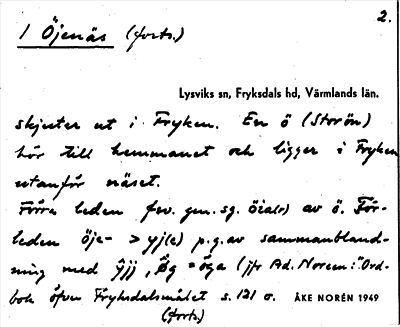 2.
1 Öjenäs (forts.)
Lysviks sn, Fryksdals hd, Värmlands län.
skjuter ut i Fryken. En ö (Storön)
hör till hemmanet och ligger i Fryken
utanför näset.
Förra leden fsv. gen. sg. av ö. För-
leden öje- > yj(e) p.g.av sammanbland-
ning med = öga (jfr Ad. Noreen: "Ord-
bok öfver Fryksdalsmålet s. 121 o.
ÅKE NORÉN 1949
(forts.)